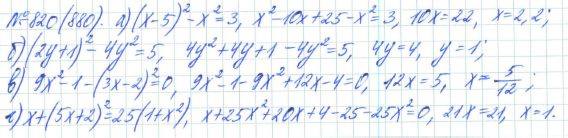 №820(880). а) (x-5)²-x²=3, x²-10x+25-x²=3, 10x=22, x=2,2;
б) (2y+1)²-4y²=5, 4y²+4y+1-4y²=5, 4y=4, y=1;
в) 9x²-1-(3x-2)²=0, 9x²-1-9x²+12x-4=0, 12x=5, x=5/12;
г) x+(5x+2)²=25(1+x²), x+25x²+20x+4-25-25x²=0, 21x=21, x=1.